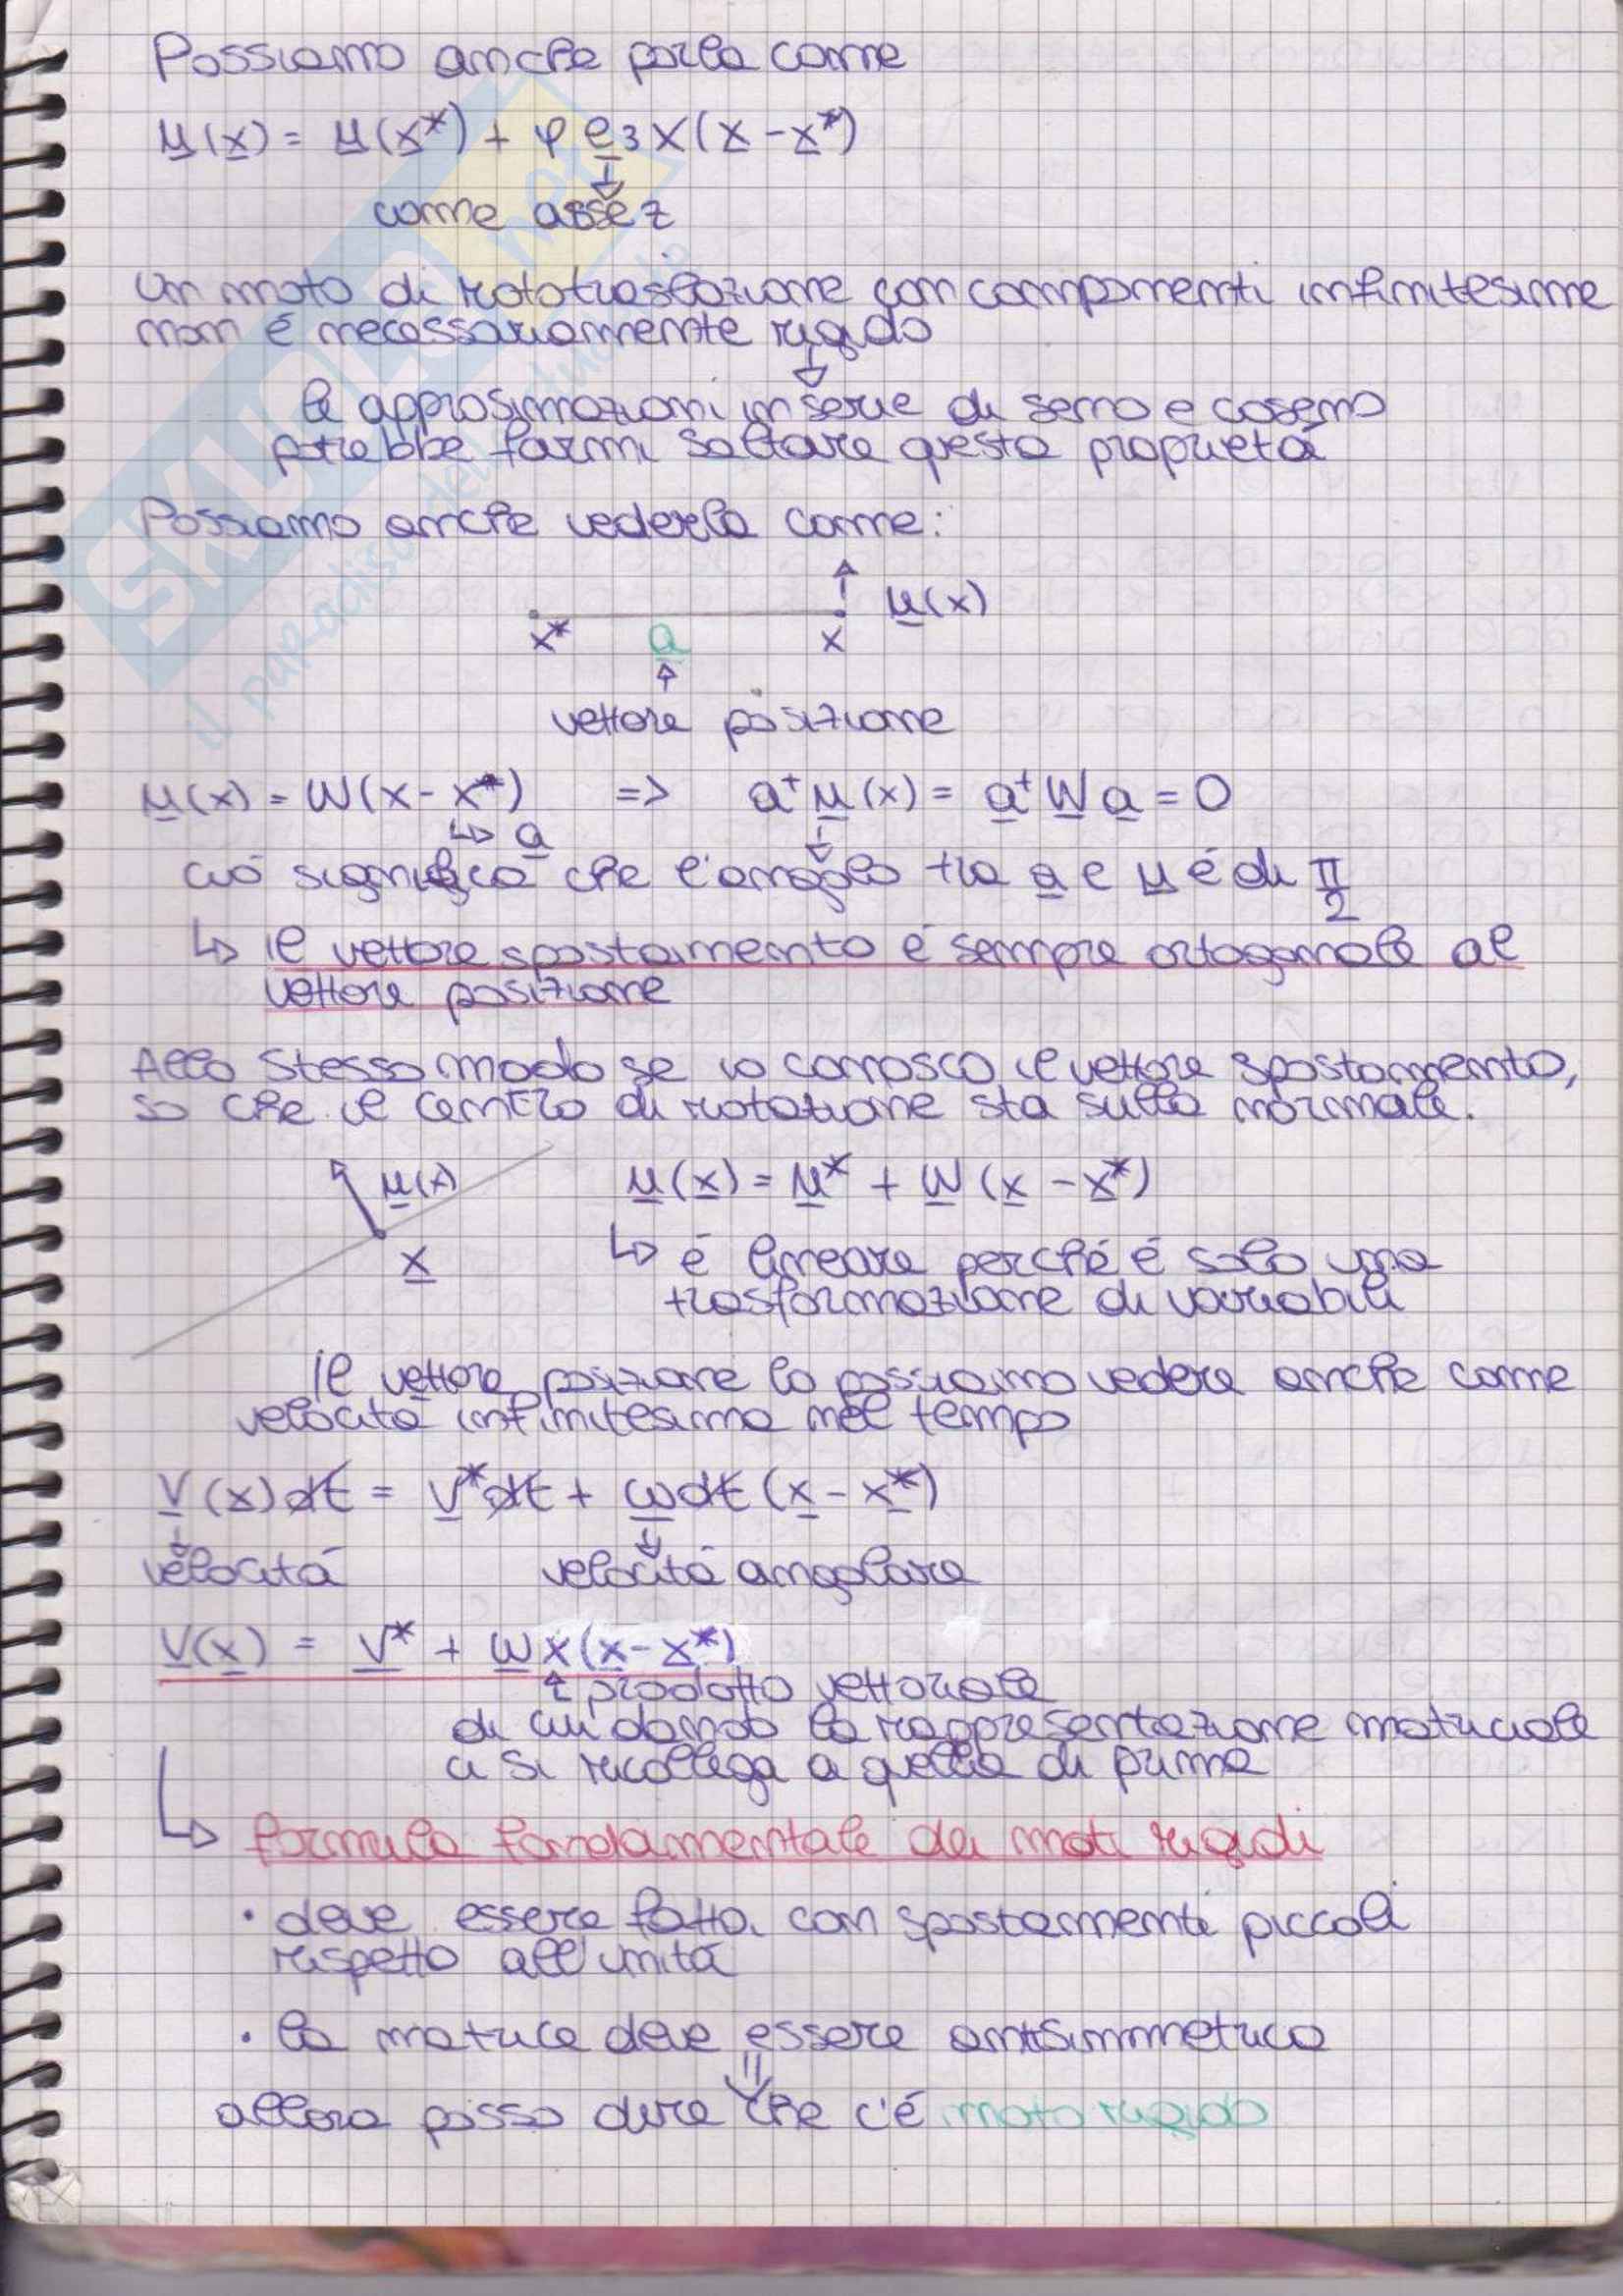 Possiamo anche porla come
u(x) = u(x*) + φ e3 x (x - x*)
come asse z
Un moto di rototraslazione con componenti infinitesime
non é necessariamente rigido
le approsimazioni in serie di seno e coseno
potrebbe farmi saltare questa proprietá
Possiamo anche vederla come:
u(x)
x* a x
vettore posizione
u(x) = W(x - x*) => a^t u(x) = a^t W a = 0
↳ a
ció significa che l'angolo tra a e u é di π/2
↳ il vettore spostamento é sempre ortogonale al
vettore posizione
Allo stesso modo se io conosco il vettore spostamento,
so che il centro di rotazione sta sulla normale.
u(x) u(x) = u* + W (x - x*)
x ↳ é lineare perché é solo una
trasformazione di variabili
Il vettore posizione lo possiamo vedere anche come
velocitá infinitesima nel tempo
v(x)dt = v*dt + ωdt (x - x*)
velocitá velocitá angolare
v(x) = v* + ω x (x - x*)
prodotto vettoriale
di cui dando la rappresentazione matriciale
ci si ricollega a quella di prima
↳ formula fondamentale dei moti rigidi
• deve essere fatta con spostamenti piccoli
rispetto all'unitá
• la matrice deve essere antisimmetrica
allora posso dire che c'é moto rigido
SKUOLA.net
il paradiso dello studente